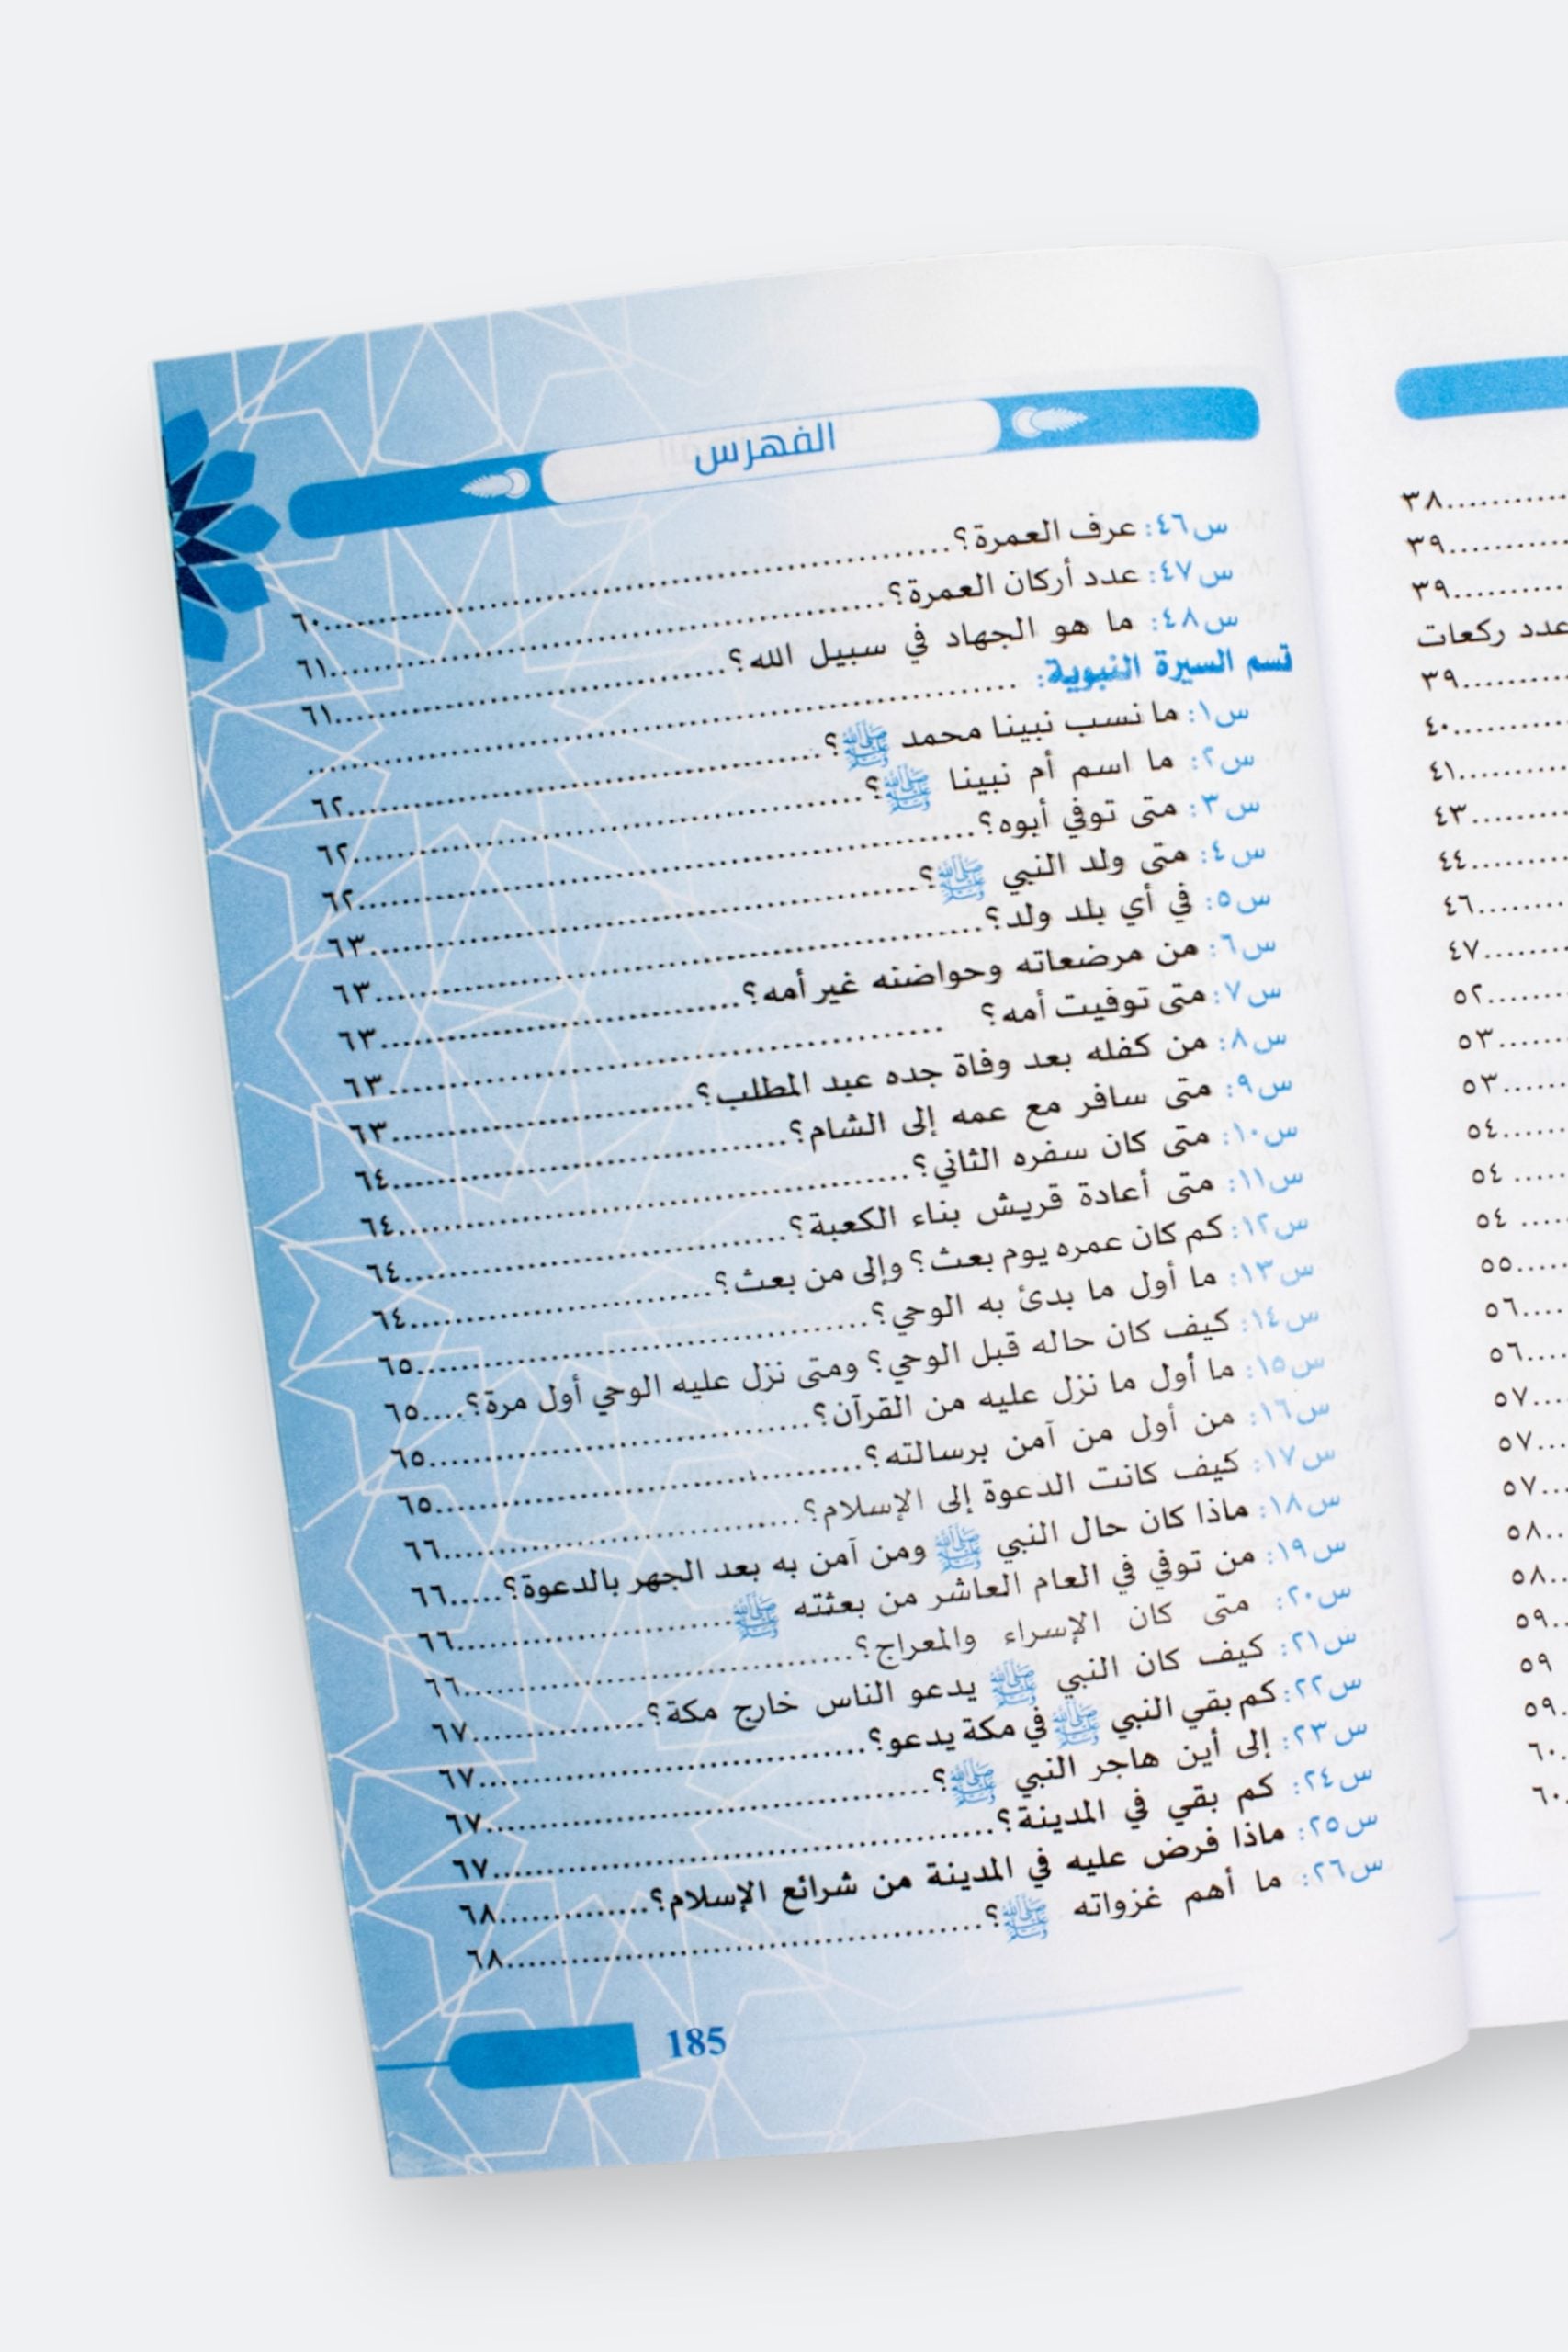 الفهرس
س٤٦: عرف العمرة؟......٦٠
س٤٧: عدد أركان العمرة؟......٦١
س٤٨: ما هو الجهاد في سبيل الله؟......٦١
قسم السيرة النبوية: ......
س١: ما نسب نبينا محمد ﷺ؟......٦٢
س٢: ما اسم أم نبينا ﷺ؟......٦٢
س٣: متى توفي أبوه؟......٦٢
س٤: متى ولد النبي ﷺ؟......٦٣
س٥: في أي بلد ولد؟......٦٣
س٦: من مرضعاته وحواضنه غير أمه؟......٦٣
س٧: متى توفيت أمه؟ ......٦٣
س٨: من كفله بعد وفاة جده عبد المطلب؟......٦٣
س٩: متى سافر مع عمه إلى الشام؟......٦٤
س١٠: متى كان سفره الثاني؟......٦٤
س١١: متى أعادة قريش بناء الكعبة؟......٦٤
س١٢: كم كان عمره يوم بعث؟ وإلى من بعث؟......٦٤
س١٣: ما أول ما بدئ به الوحي؟......٦٥
س١٤: كيف كان حاله قبل الوحي؟ ومتى نزل عليه الوحي أول مرة؟....٦٥
س١٥: ما أول ما نزل عليه من القرآن؟......٦٥
س١٦: من أول من آمن برسالته؟......٦٥
س١٧: كيف كانت الدعوة إلى الإسلام؟......٦٦
س١٨: ماذا كان حال النبي ﷺ ومن آمن به بعد الجهر بالدعوة؟.....٦٦
س١٩: من توفي في العام العاشر من بعثته ﷺ......٦٦
س٢٠: متى كان الإسراء والمعراج؟......٦٦
س٢١: كيف كان النبي ﷺ يدعو الناس خارج مكة؟......٦٧
س٢٢: كم بقي النبي ﷺ في مكة يدعو؟......٦٧
س٢٣: إلى أين هاجر النبي ﷺ؟......٦٧
س٢٤: كم بقي في المدينة؟......٦٧
س٢٥: ماذا فرض عليه في المدينة من شرائع الإسلام؟......٦٨
س٢٦: ما أهم غزواته ﷺ؟......٦٨
185
٣٨......
٣٩......
٣٩......
عدد ركعات
٣٩......
٤٠......
٤١......
٤٣......
٤٤......
٤٦......
٤٧......
٥٢......
٥٣......
٥٣......
٥٤......
٥٤ ......
٥٤ ......
٥٥......
٥٦......
٥٦......
٥٧......
٥٧......
٥٧......
٥٨......
٥٨......
٥٩......
٥٩
٥٩.
٦٠.
٦٠.